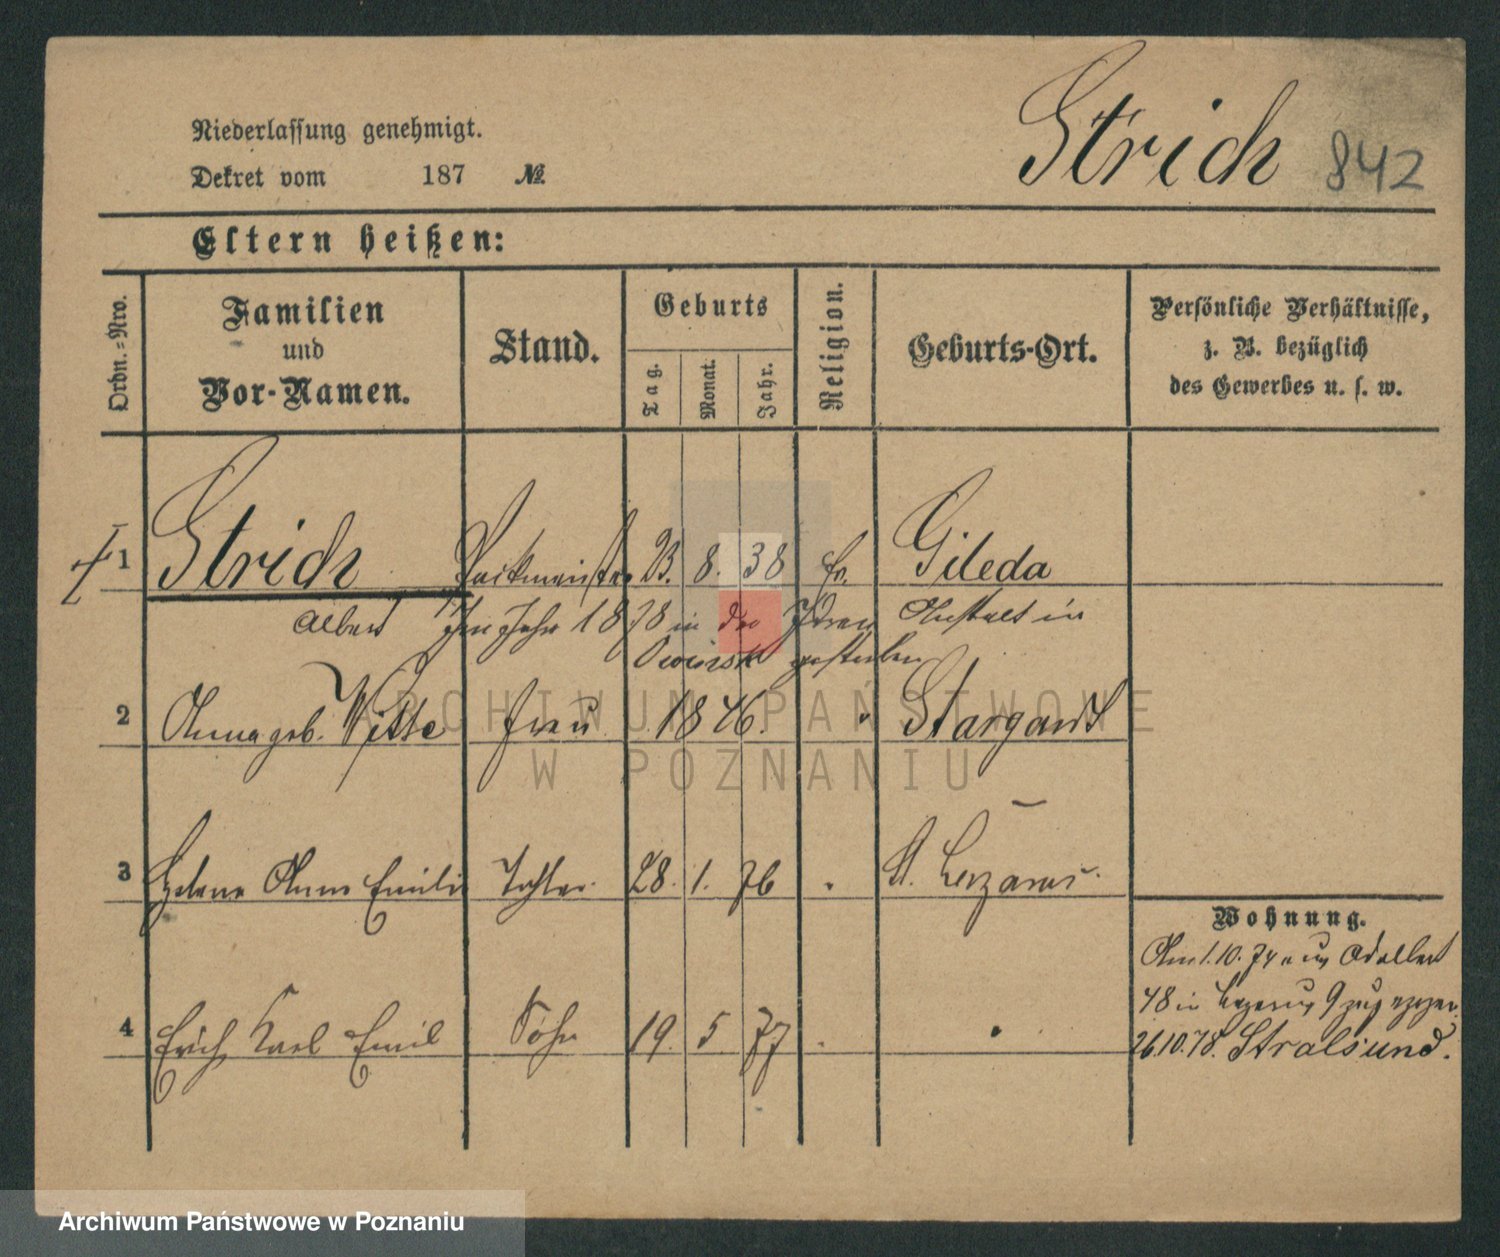 Strich 842
Niederlassung genehmigt.
Dekret vom 187 №
Eltern heißen:
Ordn.-Nro.
Familien
und
Vor-Namen.
Stand.
Geburts
Tag.
Monat.
Jahr.
Religion.
Geburts-Ort.
Persönliche Verhältnisse,
z. B. bezüglich
des Gewerbes u. s. w.
1 Strich Packmeister 23. 8. 38 Ev. Gileda
Albert Im Jahr 1878 in der Irren Anstalt in
Owinsk gestorben
2 Anna geb. Witte Frau 1846. " Stargardt
3 Helene Anna Emilie Tochter 28. 1. 76 St. Lazarus
4 Erich Karl Emil Sohn 19. 5 77
Wohnung.
Am 1.10.74 aus Adalbert
48 in Lazarus 9 zugezogen
26.10.78. Stralsund.
ARCHIWUM PAŃSTWOWE
W POZNANIU
Archiwum Państwowe w Poznaniu